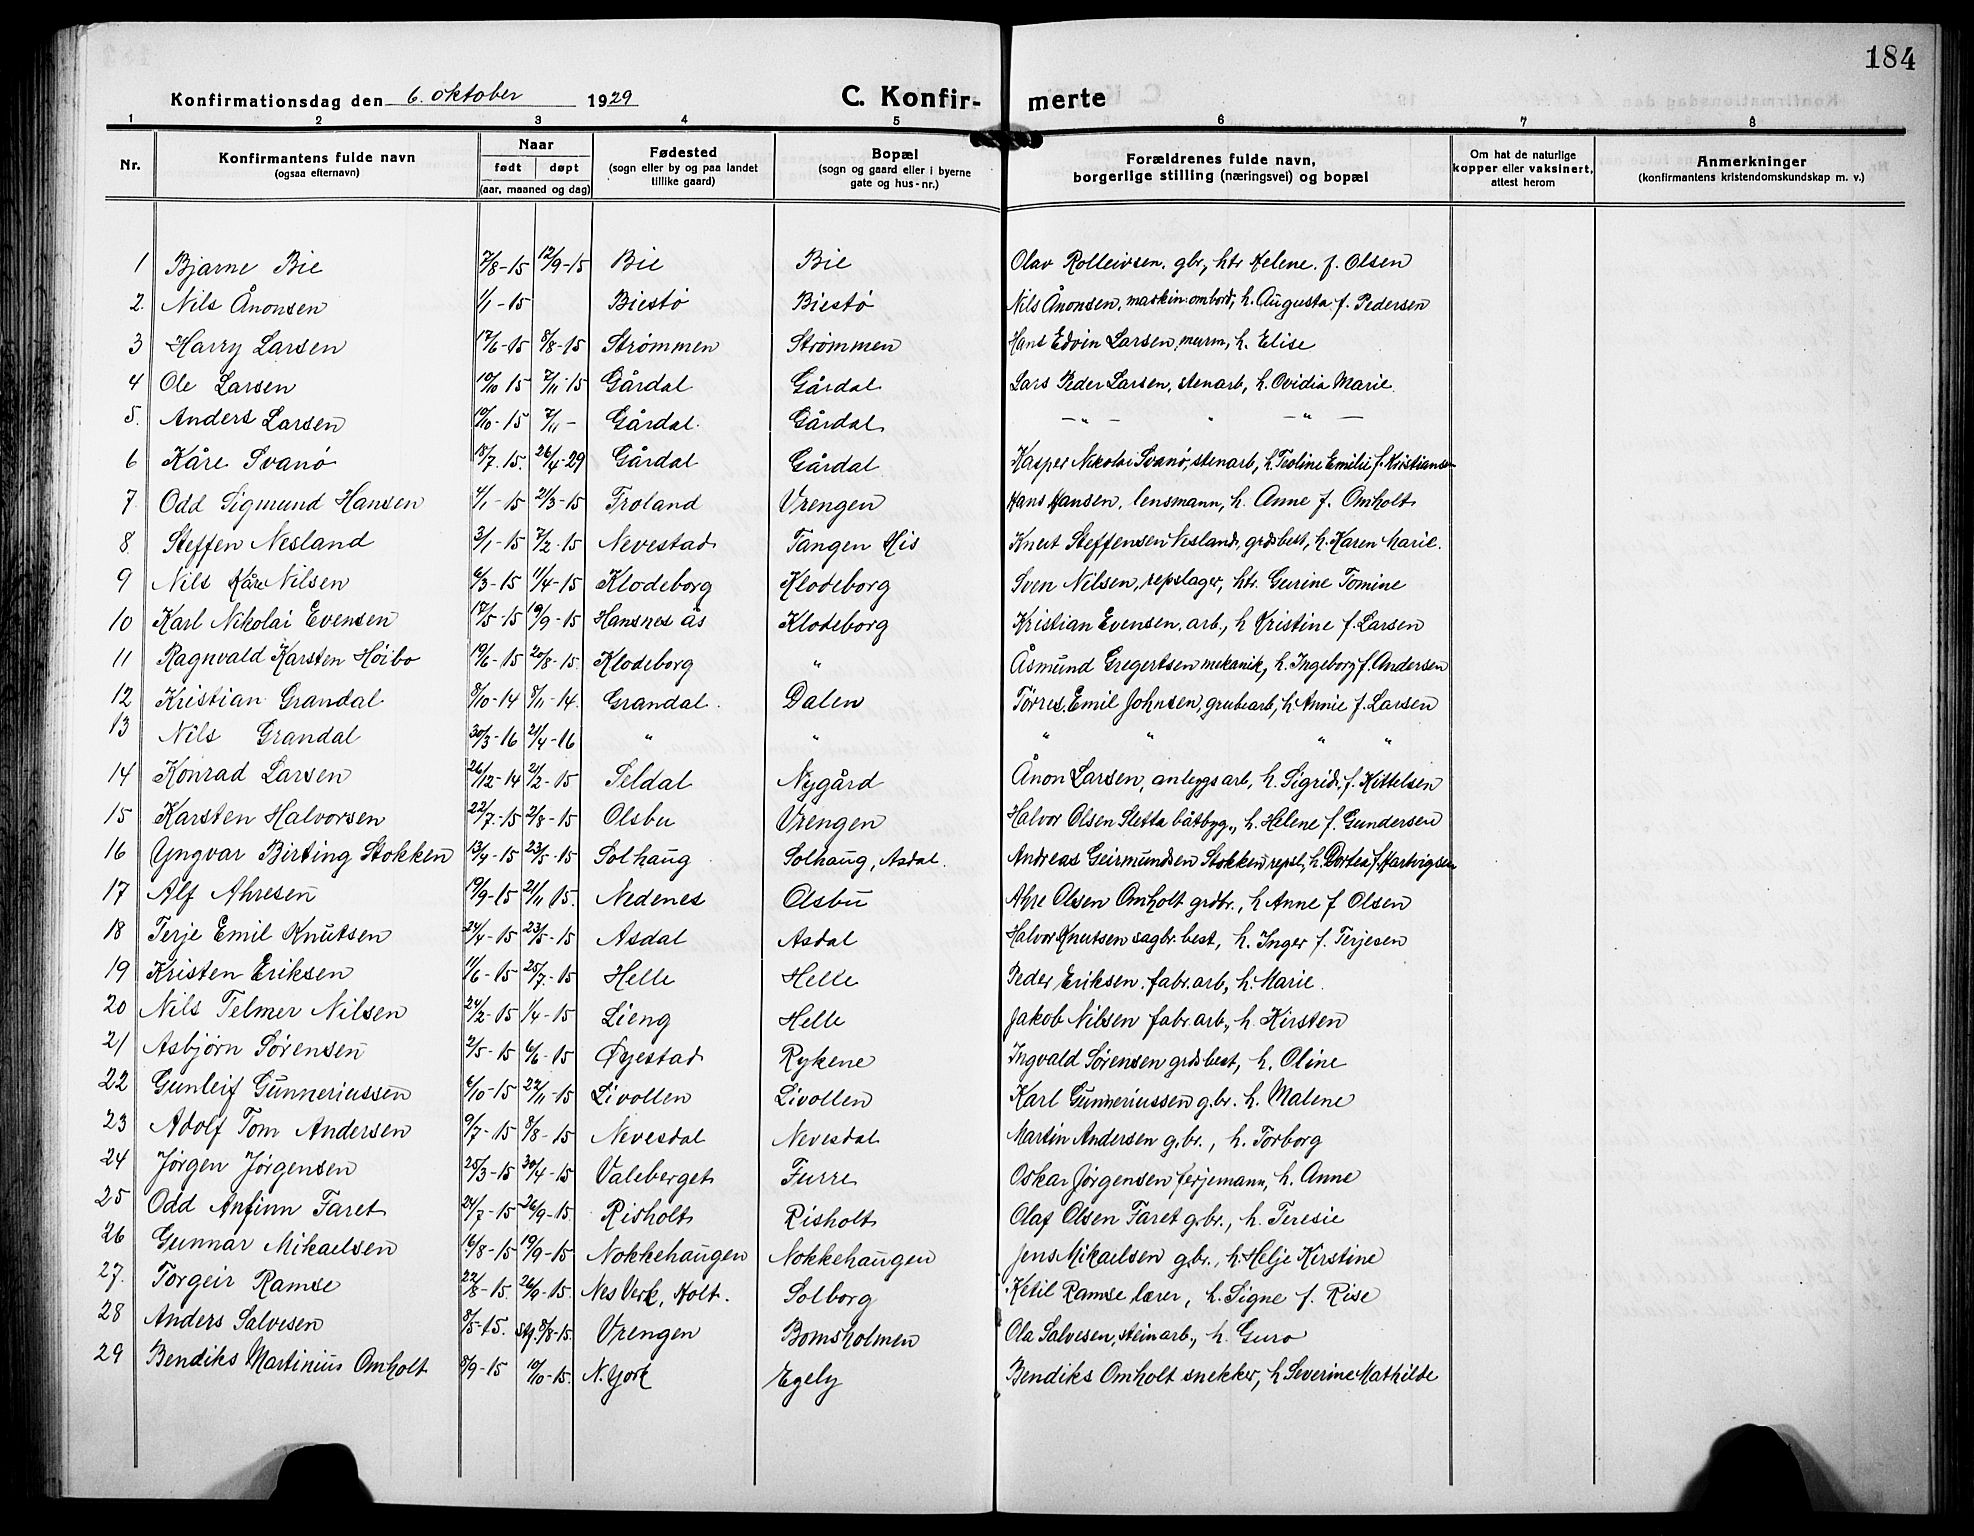 184
Konfirmationsdag den 6. oktober 1929 C. Konfir- merte
1 2 3 4 5 6 7 8
Nr. Konfirmantens fulde navn (ogsaa efternavn) Naar født døpt (aar, maaned og dag) Fødested (sogn eller by og paa landet tillike gaard) Bopæl (sogn og gaard eller i byerne gate og hus-nr.) Forældrenes fulde navn, borgerlige stilling (næringsvei) og bopæl Om hat de naturlige kopper eller vaksinert, attest herom Anmerkninger (konfirmantens kristendomskundskap m. v.)
1 Bjarne Bie 7/8-15 12/9-15 Bie Bie Olav Rolleivsen, gbr, htr Helene f. Olsen
2. Nils Ånonsen 1/1-15 Biestø Biestø Nils Ånonsen, maskin. ombord, h. Augusta f. Pedersen
3 Harry Larsen 17/6-15 8/8-15 Strømmen Strømmen Hans Edvin Larsen, murm, h. Elise
4 Ole Larsen 10/10 15 7/11-15 Gårdal Gårdal Lars Peder Larsen, stenarb, h. Ovidia Marie
5. Anders Larsen 10/10-15 7/11 - Gårdal Gårdal - " - " - " -
6 Kåre Svanø 18/7. 15. 26/4-29 Gårdal Gårdal Kasper Nikolai Svanø, stenarb, h Teoline Emilie f. Kristiansen
7 Odd Sigmund Hansen 4/1-15 21/3-15 Froland Vrengen Hans Hansen, lensmann, h. Anne f. Omholt
8. Steffen Nesland 3/1-15 7/2-15 Nevestad Tangen His Knut Steffensen Nesland, grdsbest, h. Karen Marie.
9 Nils Kåre Nilsen 6/3-15 11/4-15 Klodeborg Klodeborg Sven Nilsen, repslager, htr. Gurine Tomine
10 Karl Nikolai Evensen 17/5-15 19/9-15 Hansnes ås Klodeborg Kristian Evensen, arb., h Kristine f. Larsen
11 Ragnvald Karsten Høibo 19/6-15 20/8-15. Klodeborg " Åsmund Gregertsen mekanik, h. Ingeborg f. Andersen
12 Kristian Grandal 8/10-14 8/11-14. Grandal Dalen Tørres Emil Johnsen, grubearb, h. Annie f. Larsen
13 Nils Grandal 30/3-16 21/4-16 " " " " " "
14 Konrad Larsen 26/12-14 21/2-15 Seldal Nygård Ånon Larsen, anlegsarb, h. Sigrid f. Kittelsen
15 Karsten Halvorsen 22/7-15 2/8-15 Olsbu Vrengen Halvor Olsen Sletta båtbyg., h. Helene f. Gundersen
16 Yngvar Birting Stokken 13/4-15 23/5-15 Solhaug Solhaug, Asdal. Andreas Geirmundsen Stokken repsl, h. Dortea f. Hartvigsen
17 Alf Ahresen 19/9-15 21/11 15. Nedenes Olsbu Ahre Olsen Omholt grdbr., h Anne f Olsen
18 Terje Emil Knutsen 24/4-15 23/5-15 Asdal Asdal Halvor Knutsen sagbr. best, h. Inger f. Terjesen
19 Kristen Eriksen 11/6-15 25/7-15 Helle Helle Peder Eriksen. fabr. arb, h. Marie.
20 Nils Telmer Nilsen 24/2-15 1/4-15 Lieng Helle Jakob Nilsen fabr. arb., h. Kirsten
21 Asbjørn Sørensen 2/5-15 6/6-15 Øyestad Rykene Ingvald Sørensen grdsbest, h. Oline
22 Gunleif Gunneriussen 6/10-15 22/11-15 Livollen Livollen Karl Gunneriussen g.br. h. Malene
23 Adolf Tom Andersen 9/7-15 8/8-15 Nevesdal Nevesdal Martin Andersen g.br., h. Torborg
24 Jørgen Jørgensen 25/3-15 30/4-15 Valeberget Furre Oskar Jørgensen ferjemann, h. Anne
25 Odd Anfinn Faret 24/7-15 26/9-15. Risholt Risholt Olaf Olsen Faret gbr., h. Teresie
26 Gunnar Mikaelsen 16/8-15 19/9-15 Nokkehaugen Nokkehaugen Jens Mikaelsen gbr., h. Helje Kirstine
27. Torgeir Ramse 22/8-15. 26/9-15. Nes Verk, Holt. Solborg Ketil Ramse lærer, h. Signe f. Rise
28 Anders Salvesen 8/5-15. stf. 8/8-15. Vrengen Bomsholmen Ola Salvesen, steinarb., h. Guro
29 Bendiks Martinius Omholt 8/9-15 10/10-15. N. York Egely Bendiks Omholt snekker, h Severine Mathilde